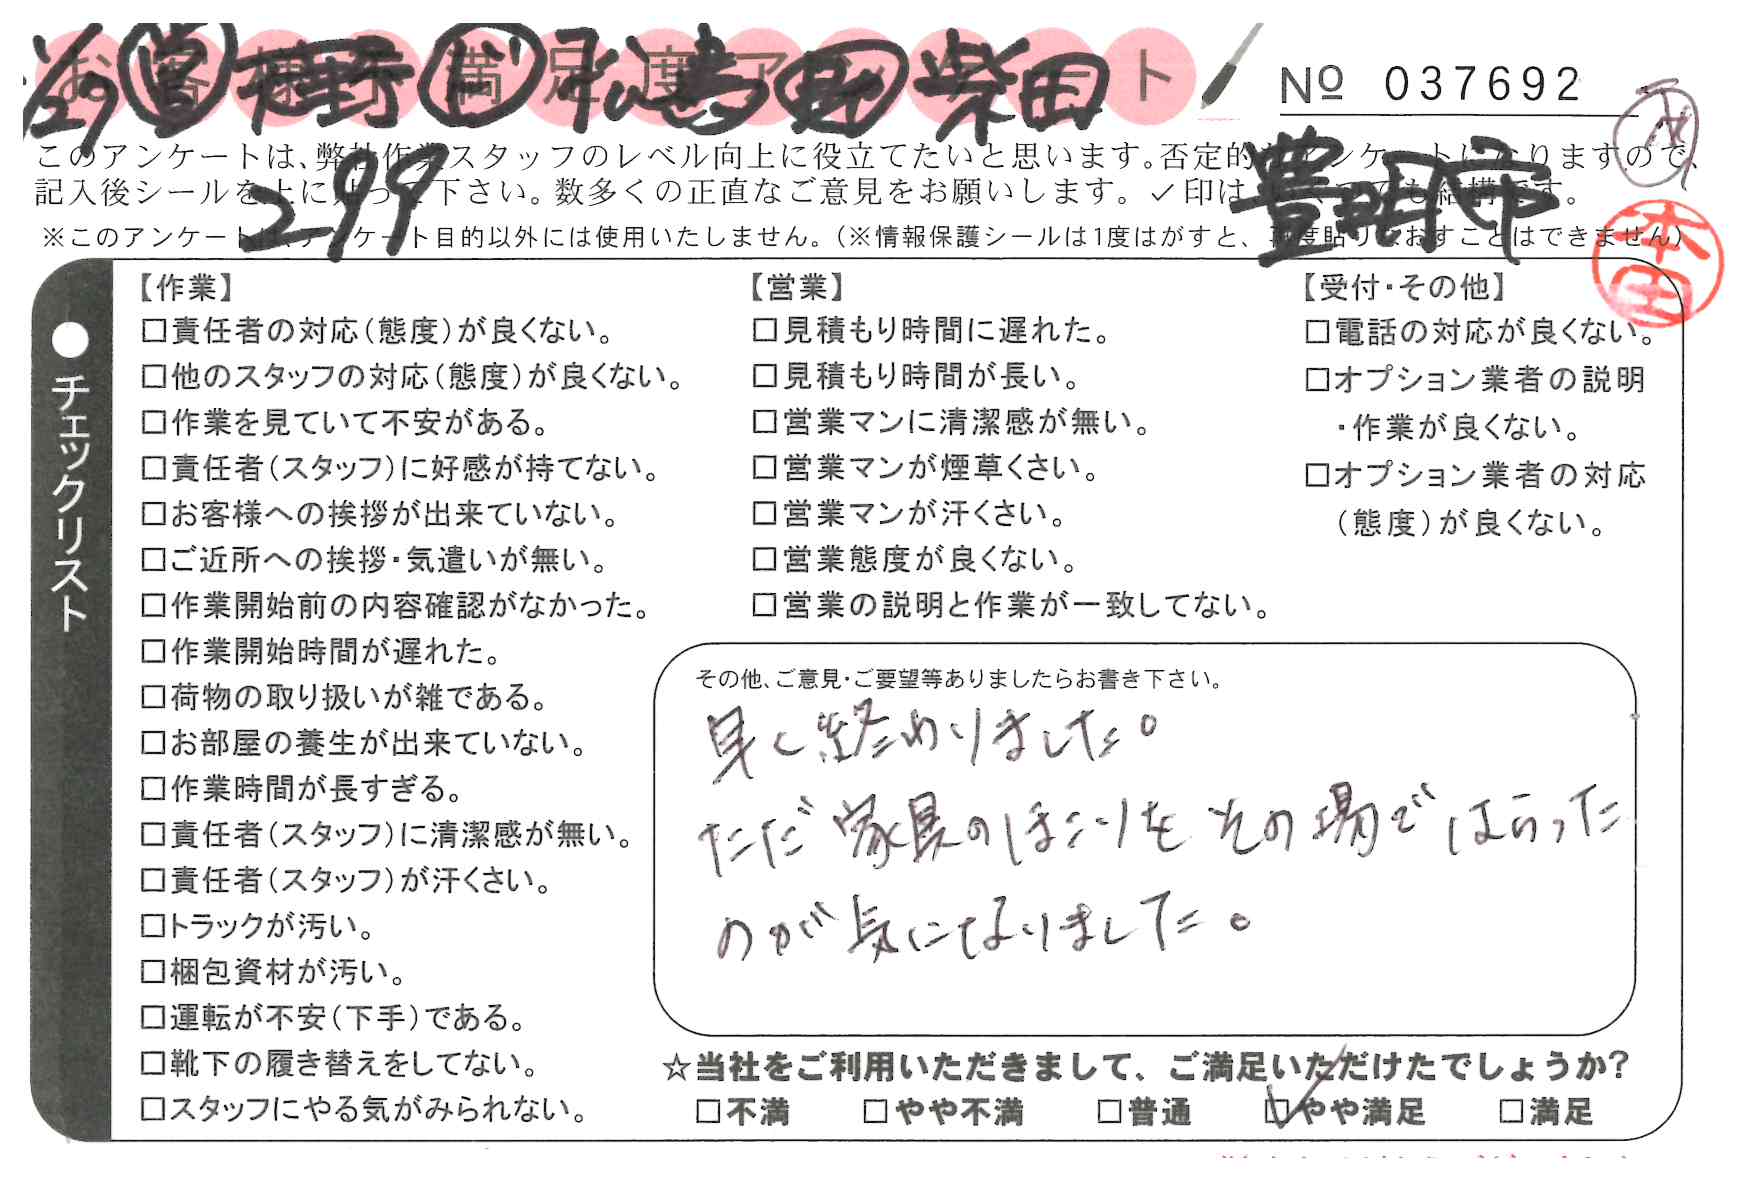 お客様満足度アンケート
1/29 営 樫野 ド 弘嵩 助 柴田
№ 037692
299
豊明市
本田
このアンケートは、弊社作業スタッフのレベル向上に役立てたいと思います。否定的なアンケートになりますので、
記入後シールを上に貼って下さい。数多くの正直なご意見をお願いします。✓印はいくつでも結構です。
※このアンケートは、アンケート目的以外には使用いたしません。（※情報保護シールは1度はがすと、再度貼りなおすことはできません）
●チェックリスト
【作業】
□責任者の対応（態度）が良くない。
□他のスタッフの対応（態度）が良くない。
□作業を見ていて不安がある。
□責任者（スタッフ）に好感が持てない。
□お客様への挨拶が出来ていない。
□ご近所への挨拶・気遣いが無い。
□作業開始前の内容確認がなかった。
□作業開始時間が遅れた。
□荷物の取り扱いが雑である。
□お部屋の養生が出来ていない。
□作業時間が長すぎる。
□責任者（スタッフ）に清潔感が無い。
□責任者（スタッフ）が汗くさい。
□トラックが汚い。
□梱包資材が汚い。
□運転が不安（下手）である。
□靴下の履き替えをしてない。
□スタッフにやる気がみられない。
【営業】
□見積もり時間に遅れた。
□見積もり時間が長い。
□営業マンに清潔感が無い。
□営業マンが煙草くさい。
□営業マンが汗くさい。
□営業態度が良くない。
□営業の説明と作業が一致してない。
【受付・その他】
□電話の対応が良くない。
□オプション業者の説明
・作業が良くない。
□オプション業者の対応
（態度）が良くない。
その他、ご意見・ご要望等ありましたらお書き下さい。
早く終わりました。
ただ家具のほこりをその場ではらった
のが気になりました。
☆当社をご利用いただきまして、ご満足いただけたでしょうか？
□不満 □やや不満 □普通 ☑やや満足 □満足